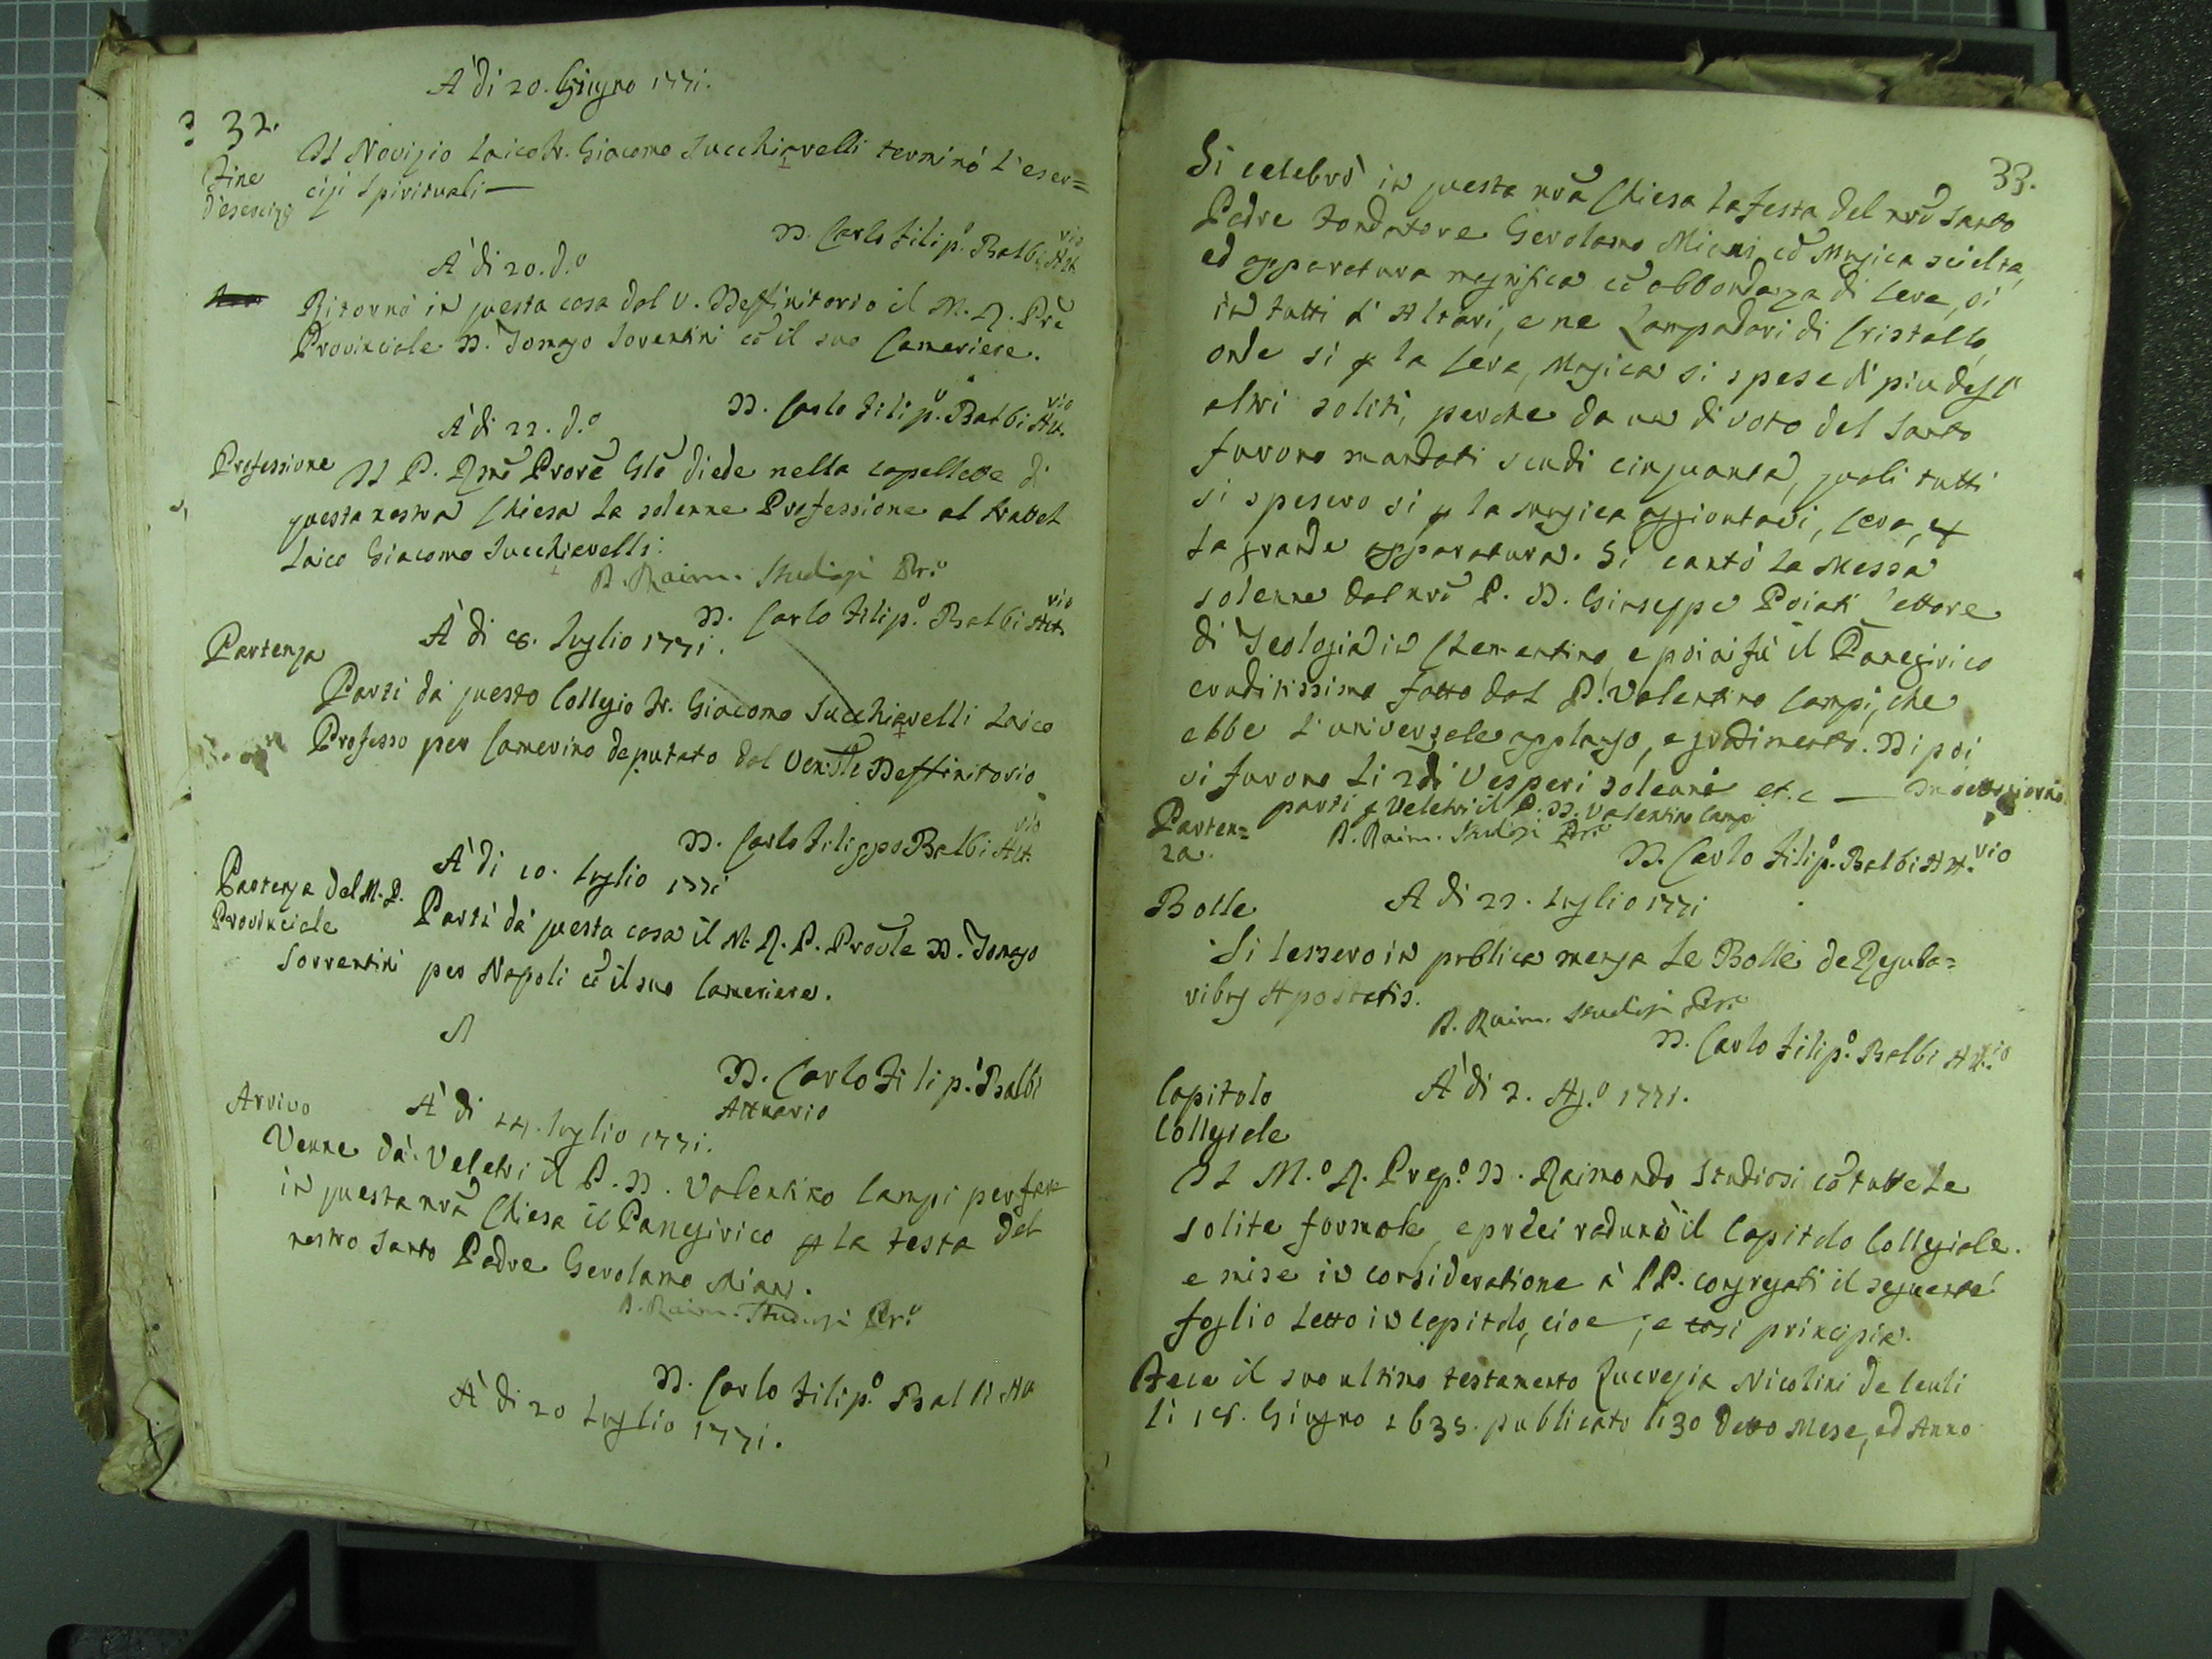 A' di 20. Giugno 1771.
32.
Fine d'esercizj
Il Novizio Laico Fr. Giacomo Succhiarelli terminò l'eser=
cizj Spirituali—
D. Carlo Filip.º Balbi Att.vio
A' di 20. d.º
Ritornò in questa casa dal V. Deffinitorio il M. R. Prẽ
Provinciale D. Tomaso Sorentini cõ il suo Cameriere.
D. Carlo Filip.º Balbi Att.vio
A' di 22. d.º
Professione
Il P. Rmõ Provẽ Glẽ diede nella capelletta di
questa nostra Chiesa la solenne Professione al Fratel
Laico Giacomo Succhiarelli.
D. Raim. Studiosi Pr.º
D. Carlo Filip.º Balbi Att.vio
A' di 8. luglio 1771.
Partenza
Partì da questo Collegio Fr. Giacomo Succhiarelli Laico
Professo per Camerino deputato dal Ven. Deffinitorio
D. Carlo Filippo Balbi Att.vio
A' di 10. luglio 1771
Partenza del M. R.
Provinciale
Sorrentini
Partì da questa casa il M. R. P. Provle D. Tomaso
per Napoli cõ il suo Cameriere.
D. Carlo Filip.º Balbi
Attuario
Arrivo
A' di 14. luglio 1771.
Venne da Veletri il P. D. Valentino Campi per far
in questa nrã Chiesa il Panegirico p la festa del
nostro Santo Padre Gerolamo Miani.
D. Raim. Studiosi Pr.º
D. Carlo Filip.º Balbi Att
A' di 20 Luglio 1771.
33.
Si celebrò in questa nrã Chiesa la festa del nrõ Santo
Padre Fondatore Gerolamo Miani cõ Musica scielta,
ed apparatura magnifica cõ abbondanza di Cera, si
in tutti l'Altari, e ne Lampadari di Cristallo,
onde si p la Cera, Musica si spese di piu degl'
altri soliti, perche da un divoto del Santo
furono mandati scudi cinquanta, quali tutti
si spesero si p la Musica aggiontavi, Cera, e p
la grande apparatura. Si cantò la Messa
solenne dal nrõ P. D. Giuseppe Poiati Lettore
di Teologia in Clementino, e poi vi fu il Panegirico
eruditissimo fatto dal P. Valentino Campi, che
ebbe l'universale applauso, e gradimento. Di poi
vi furono li 2di Vesperi solenni et.c —
Parten=
za.
partì p Veletri il P. D. Valentino Campi
D. Raim. Studiosi Pr.º
D. Carlo Filip.º Balbi Att.vio
Bolle
A di 22. luglio 1771
Si lessero in publica mensa le Bolle de Regula=
ribus Apostatis.
D. Raim. Studiosi Pr.º
D. Carlo Filip.º Balbi Att.io
Capitolo
Collegiale
A' di 2. Ag.º 1771.
Il M.º R. Prep.º D. Raimondo Studiosi cõ tutte le
solite formole, e preci radunò il Capitolo Collegiale.
e mise in consideratione à PP. congregati il seguente
foglio letto in Capitolo, cioe, e cosi principia.
Fece il suo ultimo testamento Lucrezia Nicolini de Ceuli
li 18. Giugno 1635. publicato li 30 detto Mese, ed Anno